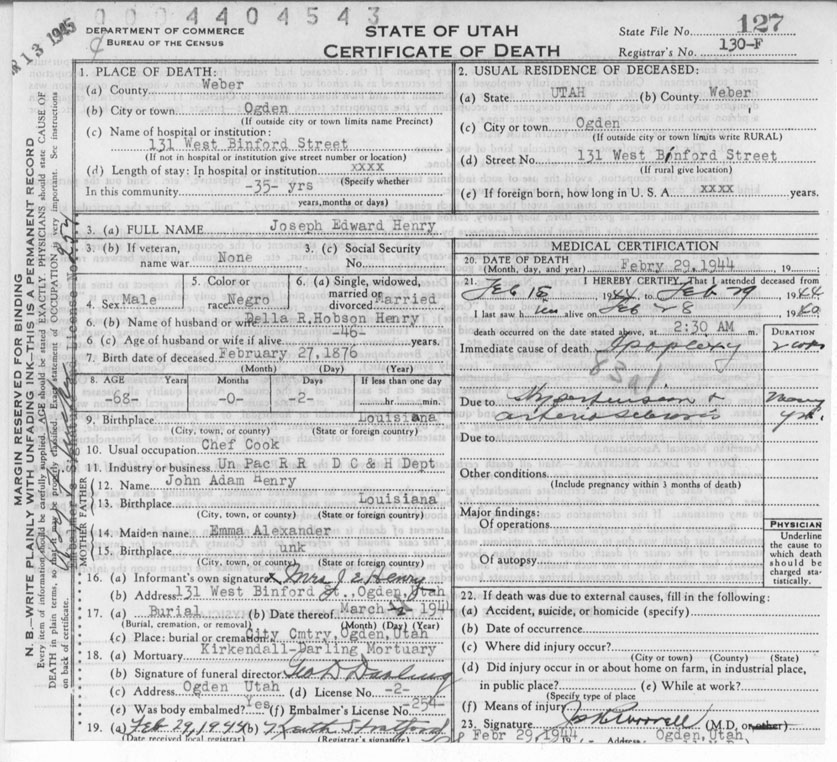 0004404543
R 13 1945
DEPARTMENT OF COMMERCE
BUREAU OF THE CENSUS
STATE OF UTAH
CERTIFICATE OF DEATH
State File No. 127
Registrar's No. 130-F
MARGIN RESERVED FOR BINDING
N. B.—WRITE PLAINLY WITH UNFADING INK—THIS IS A PERMANENT RECORD
Every item of information should be carefully supplied. AGE should be stated EXACTLY. PHYSICIANS should state CAUSE OF
DEATH in plain terms, so that it may be properly classified. Exact statement of OCCUPATION is very important. See instructions
on back of certificate.
1. PLACE OF DEATH:
(a) County Weber
(b) City or town Ogden
(If outside city or town limits name Precinct)
(c) Name of hospital or institution:
131 West Binford Street
(If not in hospital or institution give street number or location)
(d) Length of stay: In hospital or institution xxxx
(Specify whether
In this community -35- yrs
years, months or days)
2. USUAL RESIDENCE OF DECEASED:
(a) State UTAH (b) County Weber
(c) City or town Ogden
(If outside city or town limits write RURAL)
(d) Street No. 131 West Binford Street
(If rural give location)
(e) If foreign born, how long in U. S. A. xxxx years.
3. (a) FULL NAME Joseph Edward Henry
3. (b) If veteran, name war None
3. (c) Social Security No.
4. Sex Male
5. Color or race Negro
6. (a) Single, widowed, married or divorced Married
6. (b) Name of husband or wife Della R, Hobson Henry
6 (c) Age of husband or wife if alive -46- years.
7. Birth date of deceased February 27, 1876
(Month) (Day) (Year)
8. AGE Years Months Days If less than one day
-68- -0- -2- hr. min.
9. Birthplace Louisiana
(City, town, or county) (State or foreign country)
10. Usual occupation Chef Cook
11. Industry or business Un Pac R R D C & H Dept
FATHER
12. Name John Adam Henry
13. Birthplace Louisiana
(City, town, or county) (State or foreign country)
MOTHER
14. Maiden name Emma Alexander
15. Birthplace unk
(City, town, or county) (State or foreign country)
16. (a) Informant's own signature x Mrs J. E. Henry
(b) Address 131 West Binford St, Ogden, Utah
17. (a) Burial (b) Date thereof March 1944
(Burial, cremation, or removal) (Month) (Day) (Year)
(c) Place: burial or cremation City Cmtry, Ogden, Utah
18. (a) Mortuary Kirkendall-Darling Mortuary
(b) Signature of funeral director Geo D Darling
(c) Address Ogden Utah (d) License No. -2-
(e) Was body embalmed? Yes (f) Embalmer's License No. -254-
19. (a) Feb 29, 1944 (b) Keith Stratford
(Date received local registrar) (Registrar's signature)
MEDICAL CERTIFICATION
20. DATE OF DEATH Febry 29, 1944 19
(Month, day, and year)
21. I HEREBY CERTIFY, That I attended deceased from
Feb 15, 1944 to Feb 29 1944
I last saw him alive on Feb 28 19
death occurred on the date stated above, at 2:30 AM m.
DURATION
Immediate cause of death Apoplexy 2 wks
83a1
Due to Hypertension & many
arteriosclerosis yrs.
Due to
Other conditions
(Include pregnancy within 3 months of death)
Major findings:
Of operations
Of autopsy
PHYSICIAN
Underline
the cause to
which death
should be
charged sta-
tistically.
22. If death was due to external causes, fill in the following:
(a) Accident, suicide, or homicide (specify)
(b) Date of occurrence
(c) Where did injury occur?
(City or town) (County) (State)
(d) Did injury occur in or about home on farm, in industrial place,
in public place? (e) While at work?
(Specify type of place
(f) Means of injury
23. Signature (M.D, or other)
Febr 29, 1944 19 Address Ogden, Utah